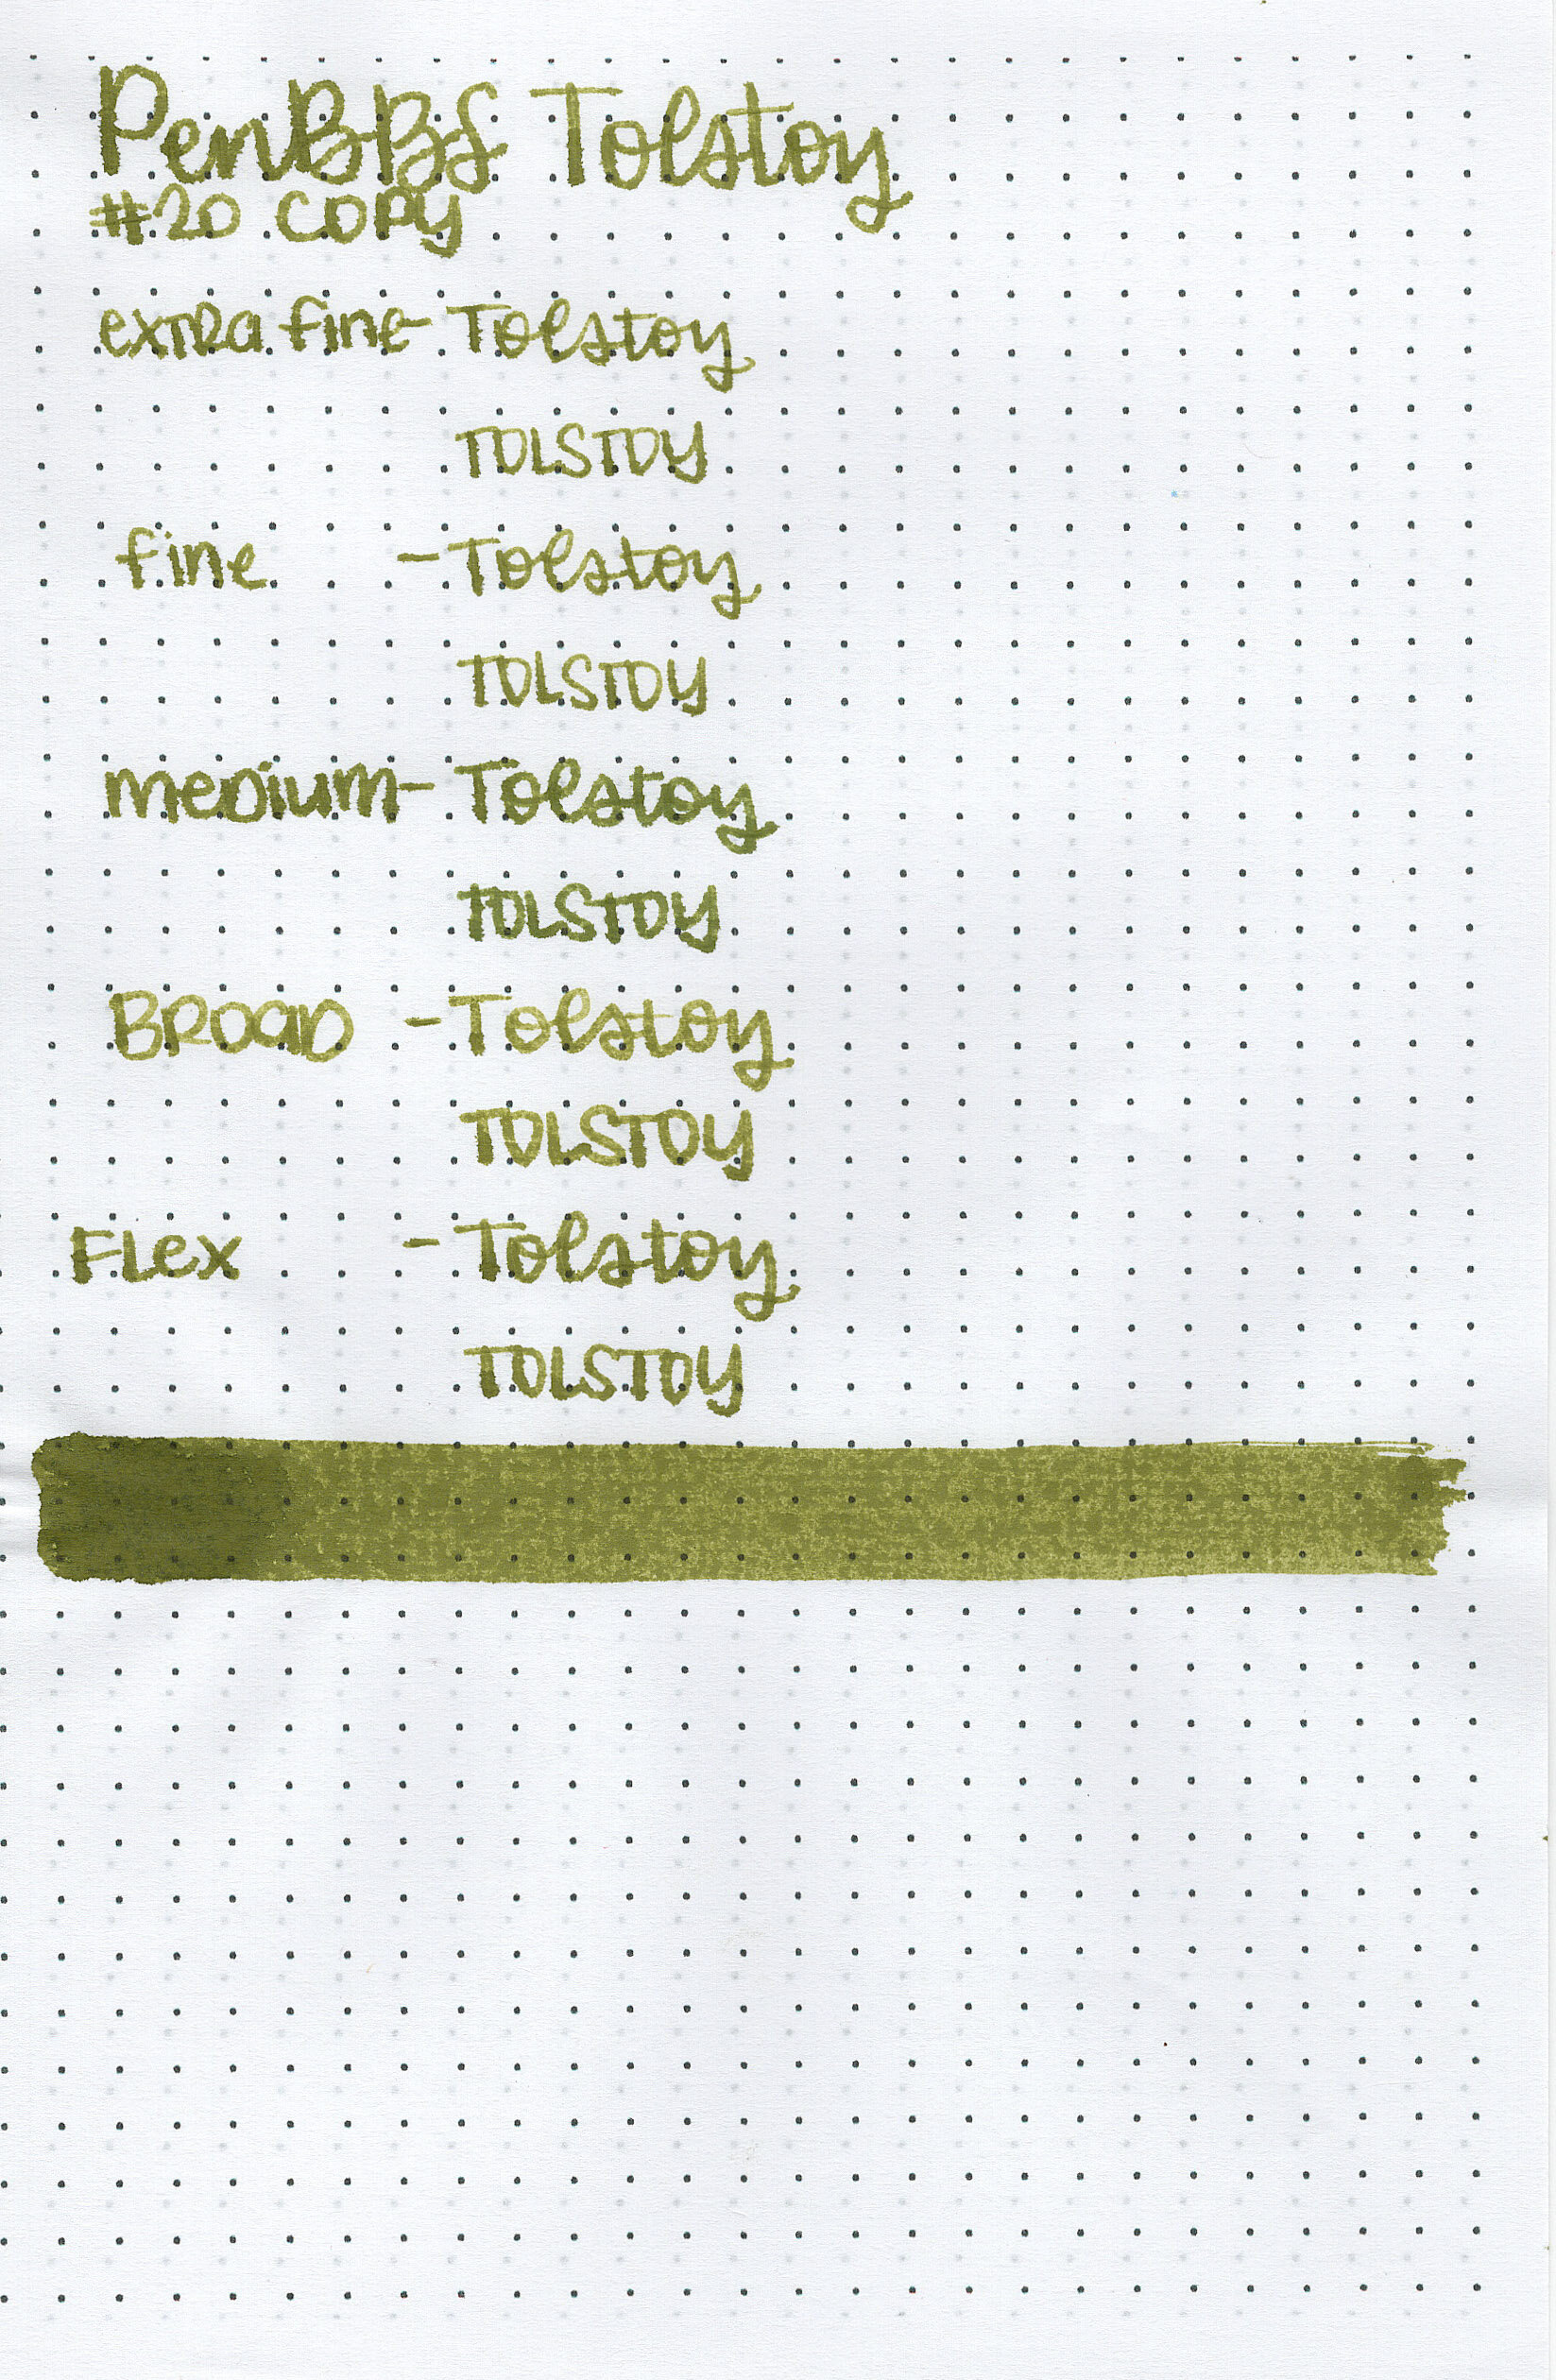 PenBBS Tolstoy
#20 COPY
extra fine - Tolstoy
TOLSTOY
fine - Tolstoy
TOLSTOY
medium - Tolstoy
TOLSTOY
BROAD - Tolstoy
TOLSTOY
FLex - Tolstoy
TOLSTOY